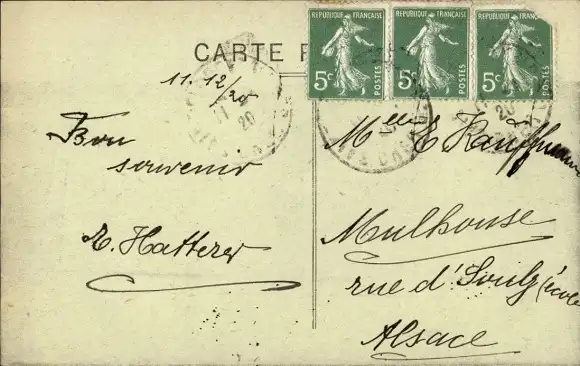 CARTE P
REPUBLIQUE FRANÇAISE
5c
POSTES
REPUBLIQUE FRANÇAISE
5c
POSTES
REPUBLIQUE FRANÇAISE
5c
POSTES
11. 12/20
11
20
Bon
souvenir
E. Hatterer
Melle E Kauffmann
Mulhouse
rue d' Soultz (école
Alsace